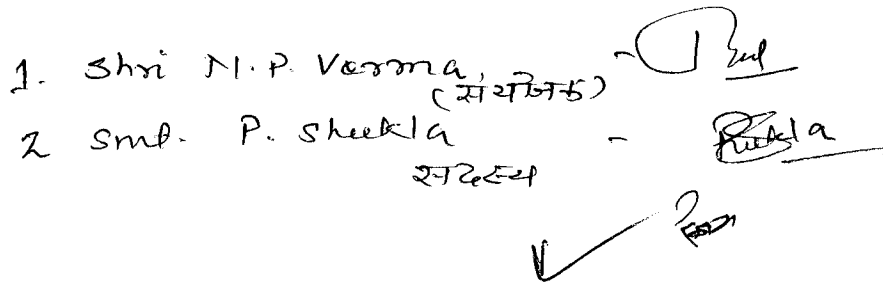 1. Shri N.P. Verma, -
(संयोजक)
2 Smt. P. Shukla -
सदस्य